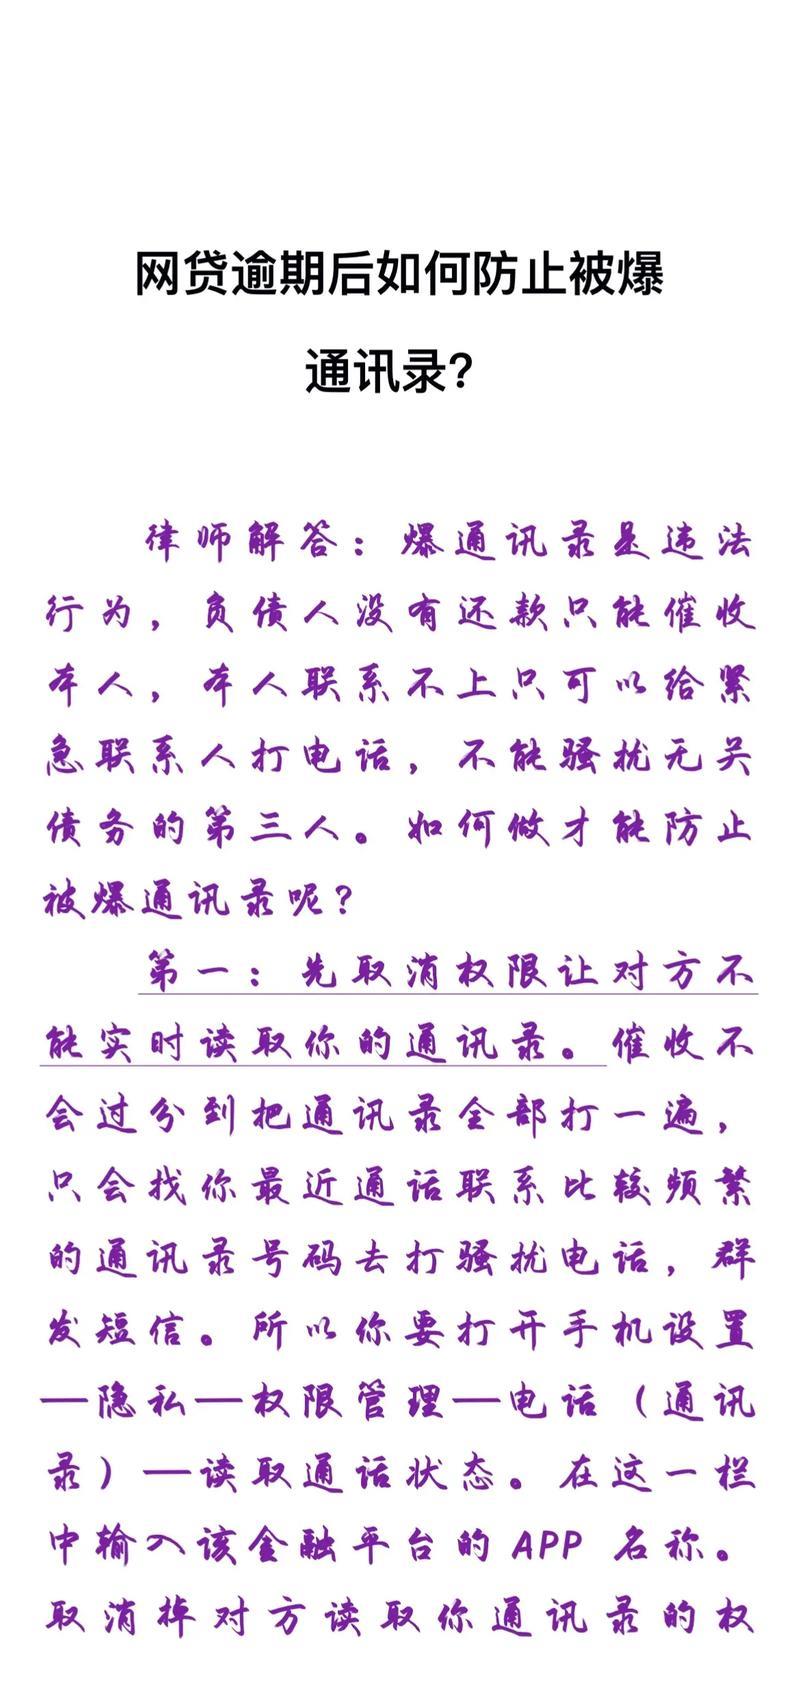 网贷逾期后如何防止被爆
通讯录?
律师解答：爆通讯录是违法
行为，负债人没有还款只能催收
本人，本人联系不上只可以给紧
急联系人打电话，不能骚扰无关
债务的第三人。如何做才能防止
被爆通讯录呢？
第一：先取消权限让对方不
能实时读取你的通讯录。催收不
会过分到把通讯录全部打一遍，
只会找你最近通话联系比较频繁
的通讯录号码去打骚扰电话，群
发短信。所以你要打开手机设置
—隐私—权限管理—电话（通讯
录）—读取通话状态。在这一栏
中输入该金融平台的 APP 名称。
取消掉对方读取你通讯录的权